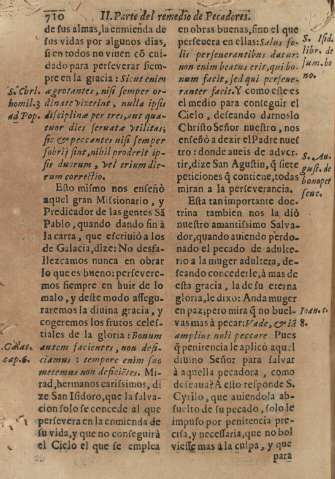 710 II. Parte del remedio de Pecadores.
de sus almas, la enmienda de
sus vidas por algunos dias,
si en todos no viuen cō cui-
dado para perseverar siem-
pre en la gracia: Sicut enim
ægrotantes, nisi semper or-
dinate vixerint, nulla ipsis
disciplinæ per tres, aut qua-
tuor dies seruatæ vtilitas;
sic & peccantes nisi semper
sobrij sint, nihil proderit ip-
sis duorum, vel trium die-
rum correctio.
S. Chri.
homil. 3
ad Pop.
Esto mismo nos enseñò
aquel gran Missionario, y
Predicador de las gentes Sā
Pablo, quando dando fin à
la carta, que escriuiò a los
de Galacia, dize: No desfa-
llezcamos nunca en obrar
lo que es bueno: persevere-
mos siempre en huir de lo
malo, y deste modo assegu-
raremos la diuina gracia, y
cogeremos los frutos celes-
tiales de la gloria: Bonum
autem facientes, non defi-
ciamus: tempore enim suo
metemus non deficiētes. Mi-
rad, hermanos carissimos, di-
ze San Isidoro, que la salva-
cion solo se concede al que
persevera en la enmienda de
su vida, y que no conseguirà
el Cielo el que se emplea
Galat.
cap. 6.
en obras buenas, sino el que
persevera en ellas: Salus so-
lis perseverantibus datur:
non enim beatus erit, qui bo-
num facit, sed qui perseve-
ranter facit. Y como este es
el medio para conseguir el
Cielo, deseando darnoslo
Christo Señor nuestro, nos
enseñò a dezir el Padre nues-
tro: donde antes de adver-
tir, dize San Agustin, q̄ siete
peticiones q̄ contiene, todas
miran a la perseverancia.
S. Isid.
libr. de
sum. bo-
no.
S. Au-
gust. de
bono per
seuer.
Esta tan importante doc-
trina tambien nos la diò
nuestro amantissimo Salva-
dor, quando auiendo perdo-
nado el pecado de adulte-
rio a la muger adultera, de-
seando concederle, à mas de
esta gracia, la de su eterna
gloria, le dixo: Anda muger
en paz; pero mira q̄ no buel-
vas mas à pecar: Vade, & iā
amplius noli peccare. Pues
Ioan.
8.
q̄ penitencia le aplicò aquel
diuino Señor para salvar
à aquella pecadora, como
deseaua? A esto responde S.
Cyrilo, que auiendola ab-
suelto de su pecado, solo le
impuso por penitencia pre-
cisa, y necessaria, que no bol
viesse mas à la culpa, y que
para